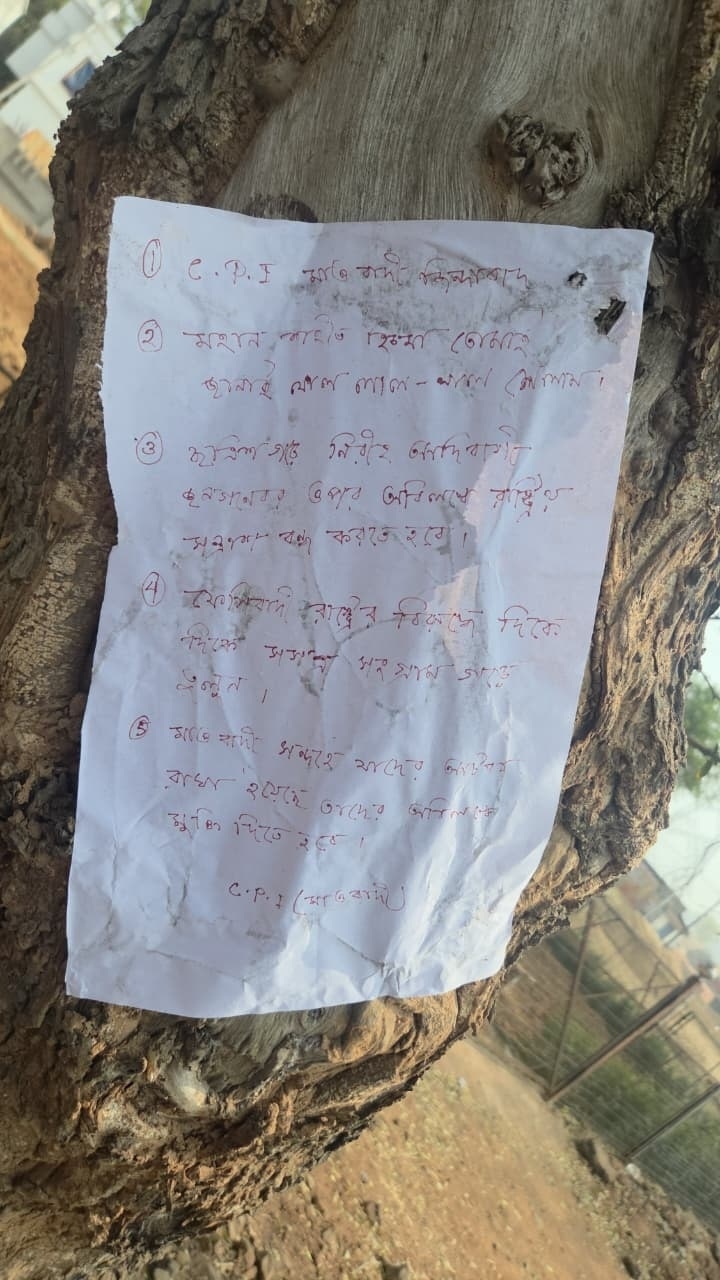 ① C.P.I মাওবাদী জিন্দাবাদ
② মহান শহীদ হিডমা তোমায়
জানাই লাল লাল - লাল সেলাম।
③ ছত্রিশগড়ে নিরীহ আদিবাসী
জনগনের উপর অবিলম্বে রাষ্ট্রিয়
সন্ত্রাস বন্ধ করতে হবে।
④ ফেসিবাদী রাষ্ট্রের বিরুদ্ধে দিকে
দিকে সসস্ত্র সংগ্রাম গড়ে
তুলুন।
⑤ মাওবাদী সন্দেহে যাদের আটক
রাখা হয়েছে তাদের অবিলম্বে
মুক্তি দিতে হবে।
C.P.I (মাওবাদী)